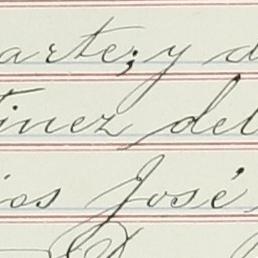 arte; y d
tinez del
ios José